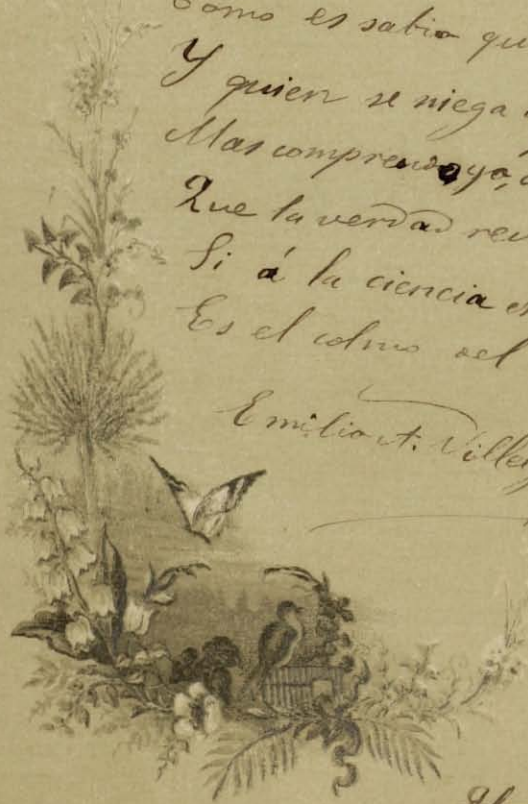 Como es sabio qu
Y quien se niega
Mas comprendo ya,
Que la verdad rev
Si á la ciencia es
Es el colmo del
Emilio A. Ville